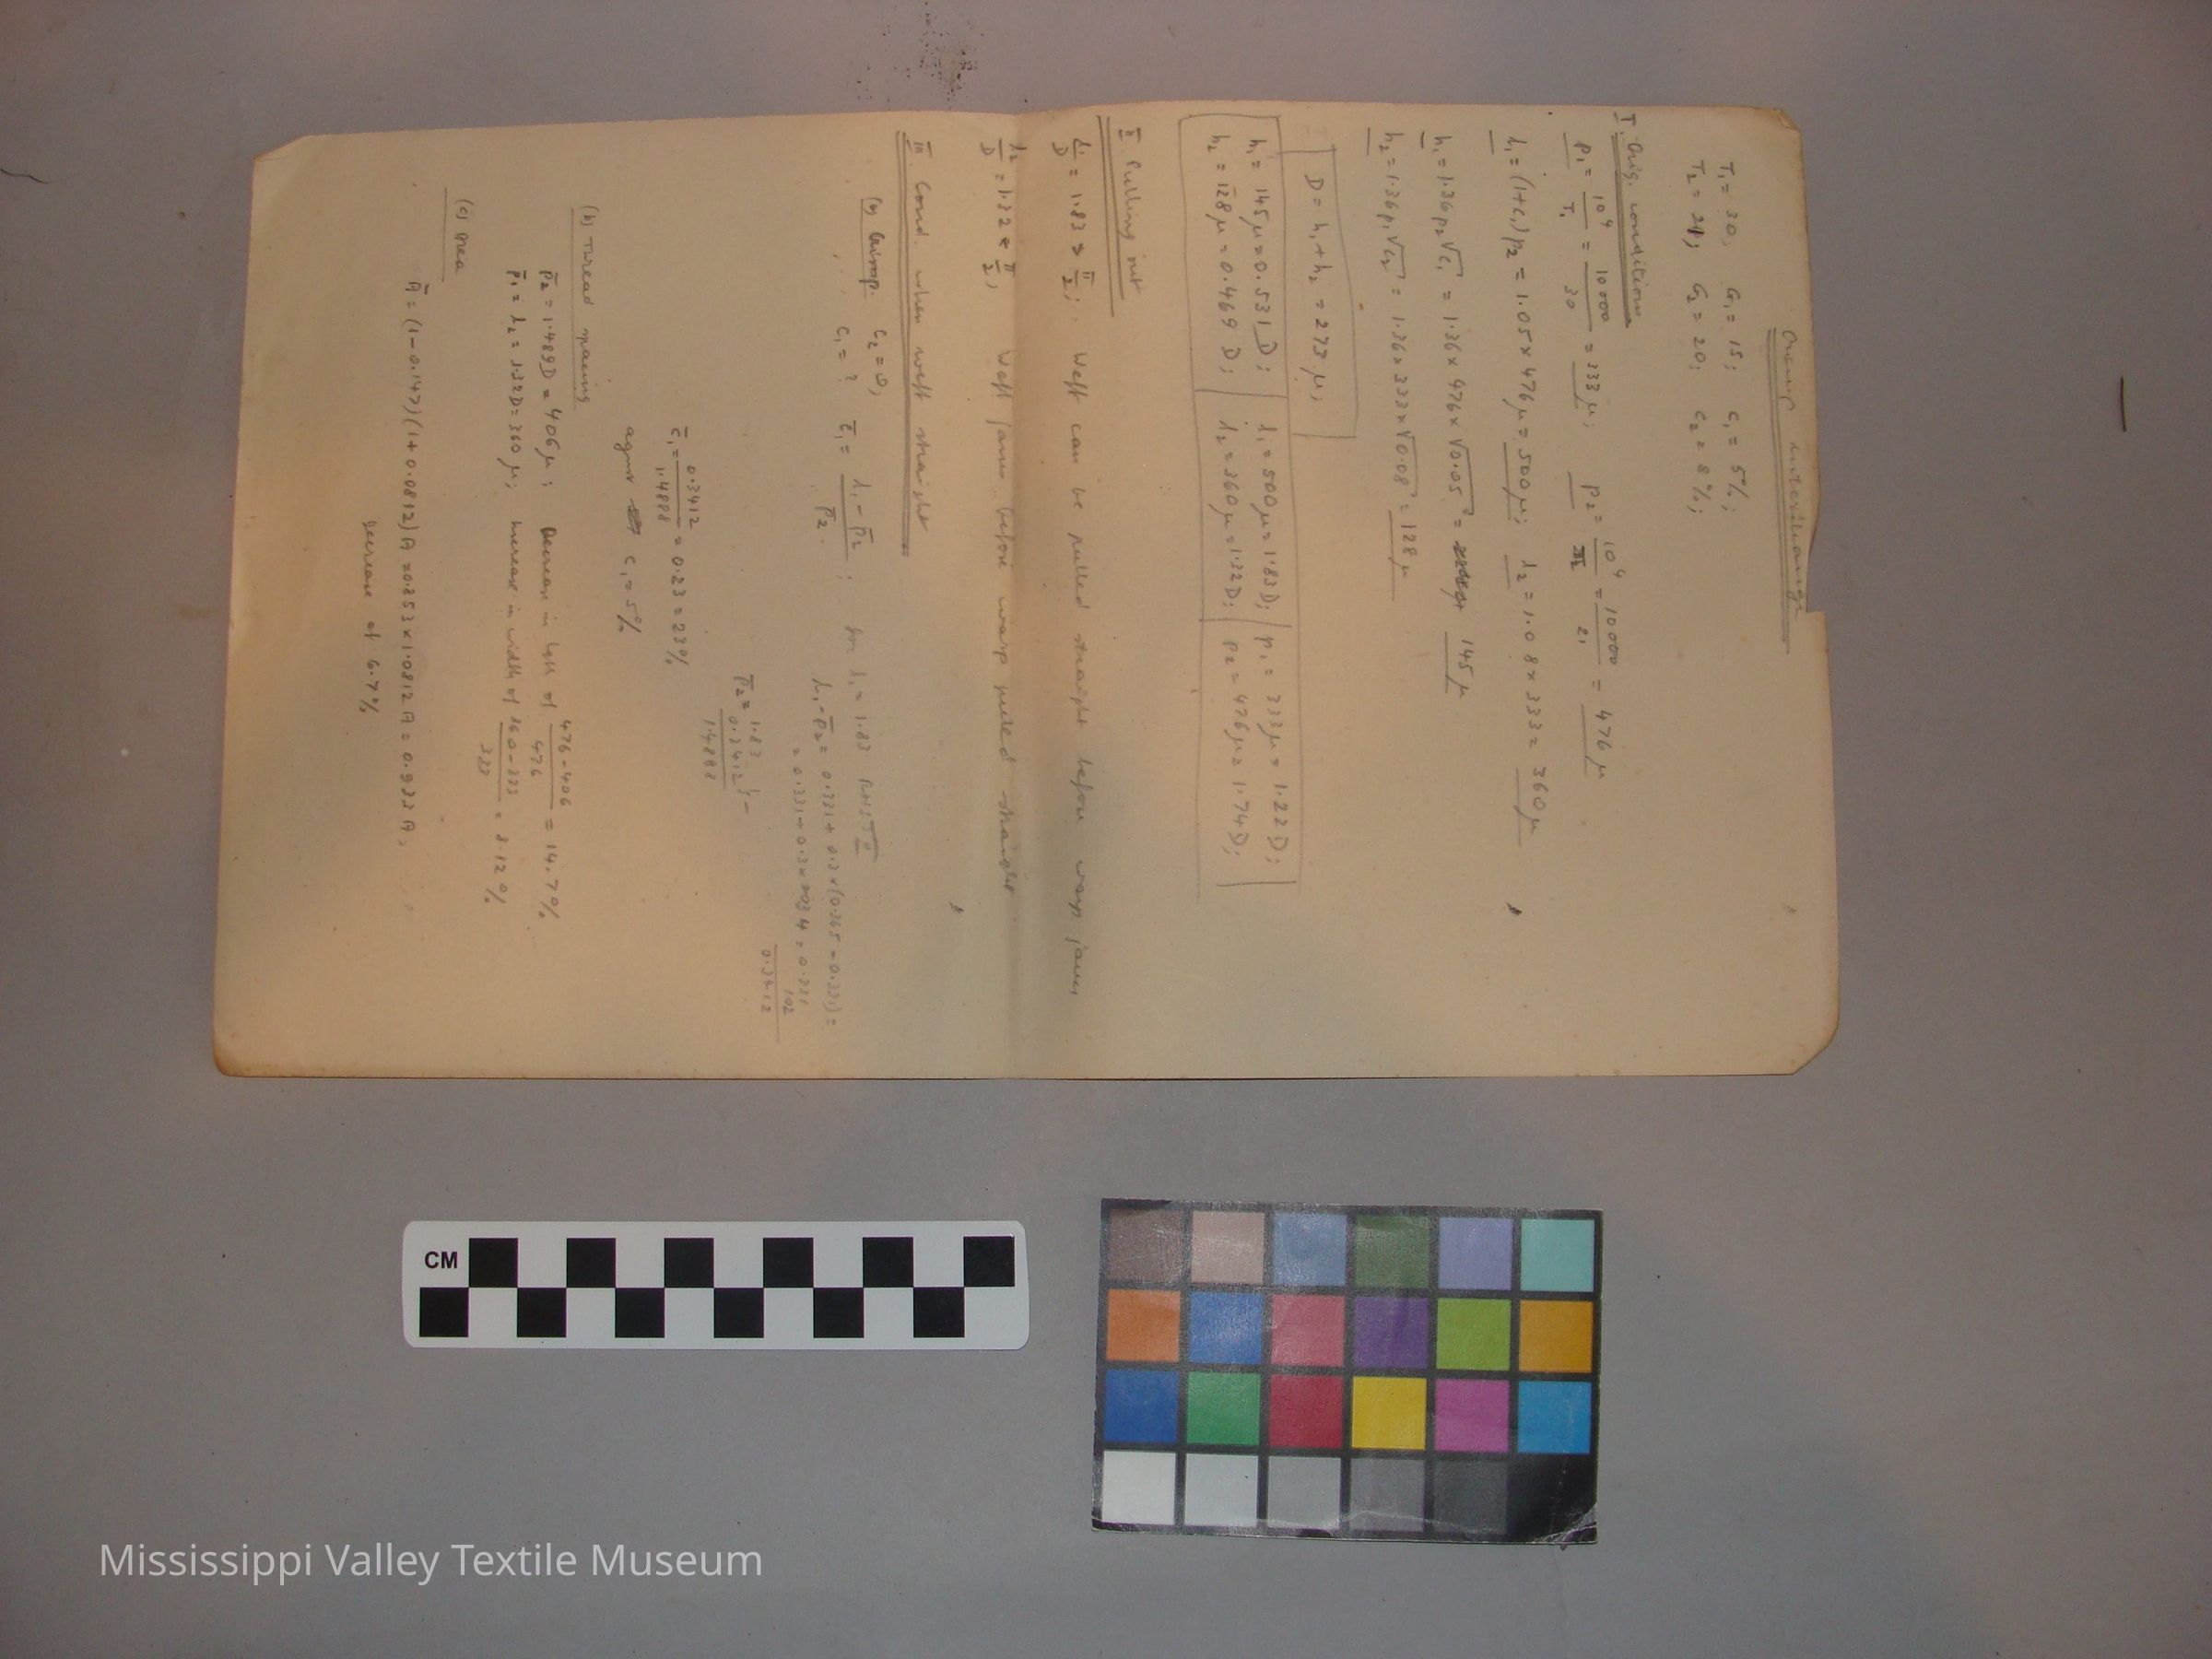 Crimp interchange
T₁ = 30, G₁ = 15; c₁ = 5%;
T₂ = 21; G₂ = 20; c₂ = 8%;
I. Orig. conditions
p₁ = 10⁴/T₁ = 10000/30 = 333 μ; p₂ = 10⁴/T₂ = 10000/21 = 476 μ
l₁ = (1+c₁)p₂ = 1.05 × 476 μ = 500 μ; l₂ = 1.08 × 333 = 360 μ
h₁ = 1.36 p₂ √c₁ = 1.36 × 476 × √0.05 = 145 μ
h₂ = 1.36 p₁ √c₂ = 1.36 × 333 × √0.08 = 128 μ
D = h₁ + h₂ = 273 μ;
h₁ = 145 μ = 0.531 D; l₁ = 500 μ = 1.83 D; p₁ = 333 μ = 1.22 D;
h₂ = 128 μ = 0.469 D; l₂ = 360 μ = 1.32 D; p₂ = 476 μ = 1.74 D;
II Pulling out
l₁/D = 1.83 > π/2; Weft can be pulled straight before warp jams
l₂/D = 1.32 < π/2; Weft jams before warp pulled straight
III Cond. when weft straight
(a) Crimp. c₂ = 0,
c₁ = ? c̄₁ = (l₁ - p̄₂)/p̄₂ ; for l₁ = 1.83
l₁ - p̄₂ = 0.331 + 0.3 × (0.365 - 0.331) =
= 0.331 + 0.3 × 0.034 = 0.331
102
0.3412
p̄₂ = 1.83
0.3412 } -
1.4888
c̄₁ = 0.3412/1.4888 = 0.23 = 23%
against c₁ = 5%
(b) Thread spacing
p̄₂ = 1.489 D = 406 μ; Decrease in lgth of (476 - 406)/476 = 14.7%
p̄₁ = l₂ = 1.32 D = 360 μ; Increase in width of (360 - 333)/333 = 8.12%
(c) Area
Ā = (1 - 0.147)(1 + 0.0812) A = 0.853 × 1.0812 A = 0.933 A,
Decrease of 6.7%
CM
Mississippi Valley Textile Museum